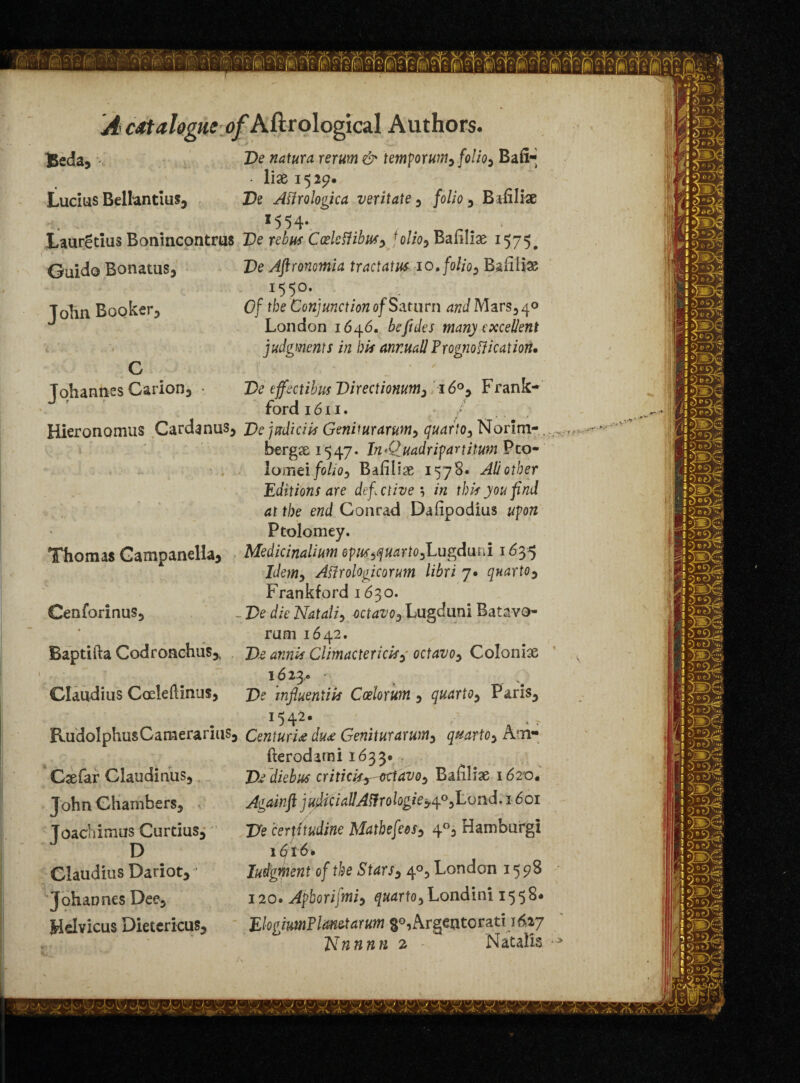 A catalogue of Aſtrological Authors.
Beda, De natura rerum & temporum, folio, Baſi-
liæ 1529.
Lucius Bellantius, De Aſtrologica veritate, folio, Baſiliæ
1554.
Laurētius Bonincontrus De rebus Cœleſtibus, folio, Baſiliæ 1575.
Guido Bonatus, De Aſtronomia tractatus 10. folio, Baſiliæ
1550.
John Booker, Of the Conjunction of Saturn and Mars, 4⁰
London 1646. beſides many excellent
judgments in his annuall Prognoſtication.
C
Johannes Carion, De effectibus Directionum, 16⁰, Frank-
ford 1611.
Hieronomus Cardanus, De judiciis Geniturarum, quarto, Norim-
bergæ 1547. In Quadripartitum Pto-
lomei folio, Baſiliæ 1578. All other
Editions are defective; in this you find
at the end Conrad Daſipodius upon
Ptolomey.
Thomas Campanella, Medicinalium opus, quarto, Lugduni 1635
Idem, Aſtrologicorum libri 7. quarto,
Frankford 1630.
Cenſorinus, De die Natali, octavo, Lugduni Batavo-
rum 1642.
Baptiſta Codronchus, De annis Climactericis, octavo, Coloniæ
1623.
Claudius Cœleſtinus, De influentiis Cœlorum, quarto, Paris,
1542.
Rudolphus Camerarius, Centuriæ duæ Geniturarum, quarto, Am-
ſterodami 1633.
Cæſar Claudinus, De diebus criticis, octavo, Baſiliæ 1620.
John Chambers, Againſt judiciall Aſtrologie, 4⁰, Lond. 1601
Joachimus Curtius, De certitudine Matheſeos, 4⁰, Hamburgi
D 1616.
Claudius Dariot, Iudgment of the Stars, 4⁰, London 1598
Johannes Dee, 120. Aphoriſmi, quarto, Londini 1558.
Helvicus Dietericus, Elogium Planetarum 8⁰, Argentorati 1627
Nnnnn 2 Natalis